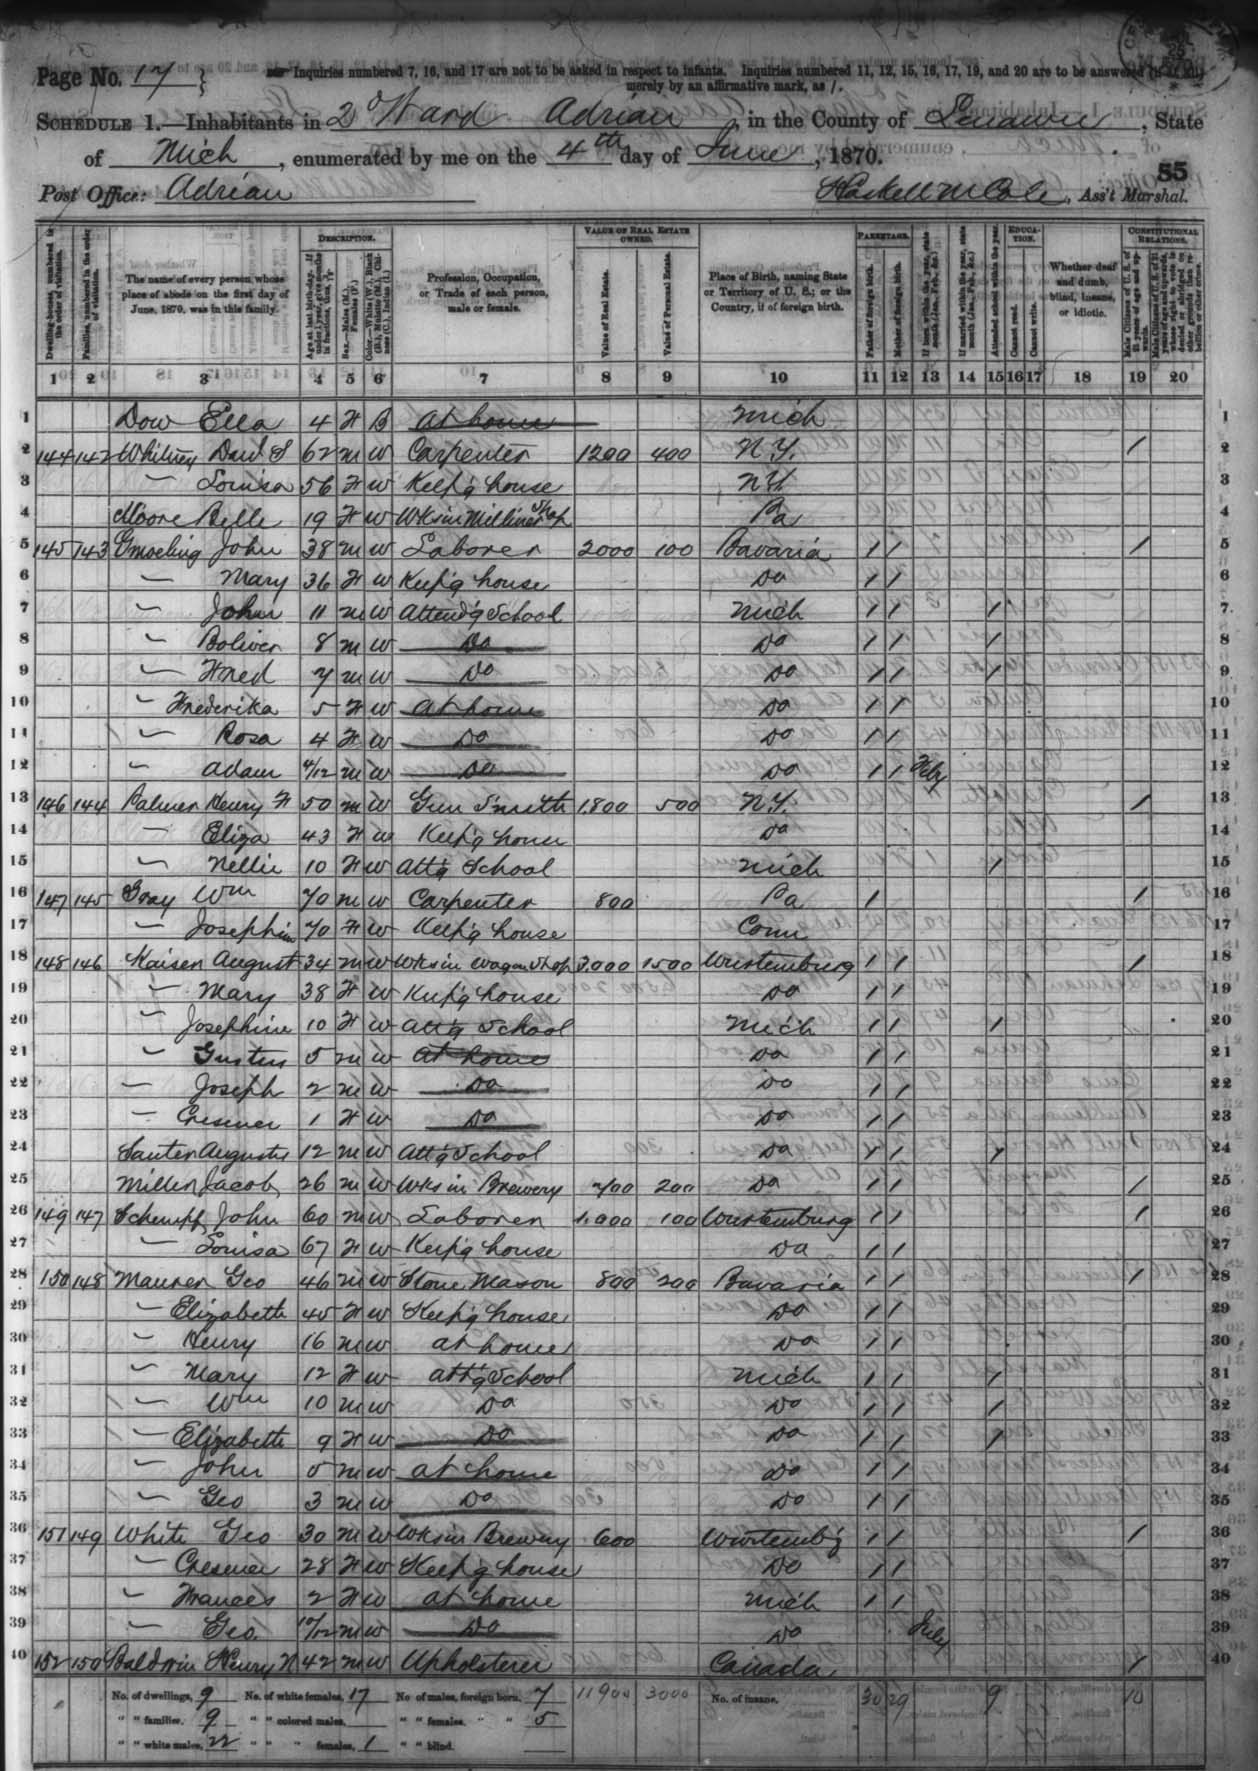 Page No. 17 } Inquiries numbered 7, 16, and 17 are not to be asked in respect to infants. Inquiries numbered 11, 12, 15, 16, 17, 19, and 20 are to be answered (if at all)
merely by an affirmative mark, as /.
SCHEDULE 1.—Inhabitants in 2d Ward Adrian, in the County of Lenawee, State
of Mich, enumerated by me on the 4th day of June, 1870.
55
Post Office: Adrian Haskell M Cole, Ass't Marshal.
DESCRIPTION. VALUE OF REAL ESTATE OWNED. PARENTAGE. EDUCATION. CONSTITUTIONAL RELATIONS.
Dwelling-houses, numbered in the order of visitation. Families, numbered in the order of visitation. The name of every person whose place of abode on the first day of June, 1870, was in this family. Age at last birth-day. If under 1 year, give months in fractions, thus, 3/12 Sex.—Males (M.), Females (F.) Color.—White (W.), Black (B.), Mulatto (M.), Chinese (C.), Indian (I.) Profession, Occupation, or Trade of each person, male or female. Value of Real Estate. Value of Personal Estate. Place of Birth, naming State or Territory of U. S.; or the Country, if of foreign birth. Father of foreign birth. Mother of foreign birth. If born within the year, state month (Jan., Feb., &c.) If married within the year, state month (Jan., Feb., &c.) Attended school within the year. Cannot read. Cannot write. Whether deaf and dumb, blind, insane, or idiotic. Male Citizens of U. S. of 21 years of age and upwards. Male Citizens of U. S. of 21 years of age and upwards, whose right to vote is denied or abridged on other grounds than rebellion or other crime.
1 2 3 4 5 6 7 8 9 10 11 12 13 14 15 16 17 18 19 20
1 Dow Ella 4 F B At home Mich 1
2 144 142 Whitney Danl S 62 M W Carpenter 1200 400 N.Y. / 2
3 — Louisa 56 F W Keep'g house N.Y. 3
4 Moore Belle 19 F W Wks in Milliner Shop Pa 4
5 145 143 Gmoeling John 38 M W Laborer 2000 100 Bavaria / / / 5
6 — Mary 36 F W Keep'g house Do / / 6
7 — John 11 M W Attend'g School Mich / / / 7
8 — Boliver 8 M W Do Do / / / 8
9 — Fred 7 M W Do Do / / / 9
10 — Frederika 5 F W At home Do / / 10
11 — Rosa 4 F W Do Do / / 11
12 — Adam 4/12 M W Do Do / / Feby 12
13 146 144 Palmer Henry F 50 M W Gun Smith 1,800 500 N.Y. / 13
14 — Eliza 43 F W Keep'g house Do 14
15 — Nellie 10 F W Att'g School Mich / 15
16 147 145 Gray Wm 70 M W Carpenter 800 Pa / / 16
17 — Josephine 70 F W Keep'g house Conn 17
18 148 146 Kaiser August 34 M W Wks in Wagon Shop 3,000 1500 Wurtemburg / / / 18
19 — Mary 38 F W Keep'g house Do / / 19
20 — Josephine 10 F W Att'g School Mich / / / 20
21 — Gustus 5 M W At home Do / / 21
22 — Joseph 2 M W Do Do / / 22
23 — Cresener 1 F W Do Do / / 23
24 Sauter Augustus 12 M W Att'g School Do / / / 24
25 Miller Jacob 26 M W Wks in Brewery 700 200 Do / / / 25
26 149 147 Schempf John 60 M W Laborer 1,000 100 Wurtemburg / / / 26
27 — Louisa 67 F W Keep'g house Do / / 27
28 150 148 Maurer Geo 46 M W Stone Mason 800 200 Bavaria / / / 28
29 — Elizabeth 45 F W Keep'g house Do / / 29
30 — Henry 16 M W at home Do / / 30
31 — Mary 12 F W att'g School Mich / / / 31
32 — Wm 10 M W Do Do / / / 32
33 — Elizabeth 9 F W Do Do / / / 33
34 — John 5 M W at home Do / / 34
35 — Geo 3 M W Do Do / / 35
36 151 149 White Geo 30 M W Wks in Brewery 600 Wurtemb'g / / / 36
37 — Cresener 28 F W Keep'g house Do / / 37
38 — Frances 2 F W at home Mich / / 38
39 — Geo. 10/12 M W Do Do July 39
40 152 150 Baldwin Henry N 42 M W Upholsterer Canada / 40
No. of dwellings, 9 No. of white females, 17 No of males, foreign born, 7 11900 3000 No. of insane, 30 29 9 10
" " families, 9 " " colored males, " " females, " " 5
" " white males, 22 " " " females, 1 " " blind,